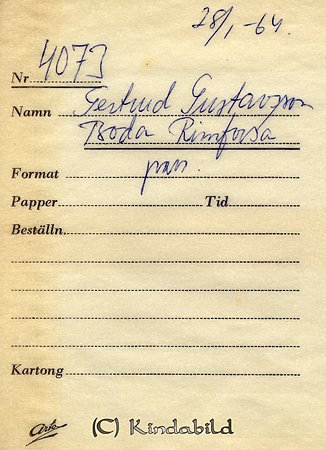 28/1-64.
Nr 4073
Namn Gertrud Gustavsson
Boda Rimforsa
Format
Papper Tid
Beställn.
Kartong
Ark
(C) Kindabild